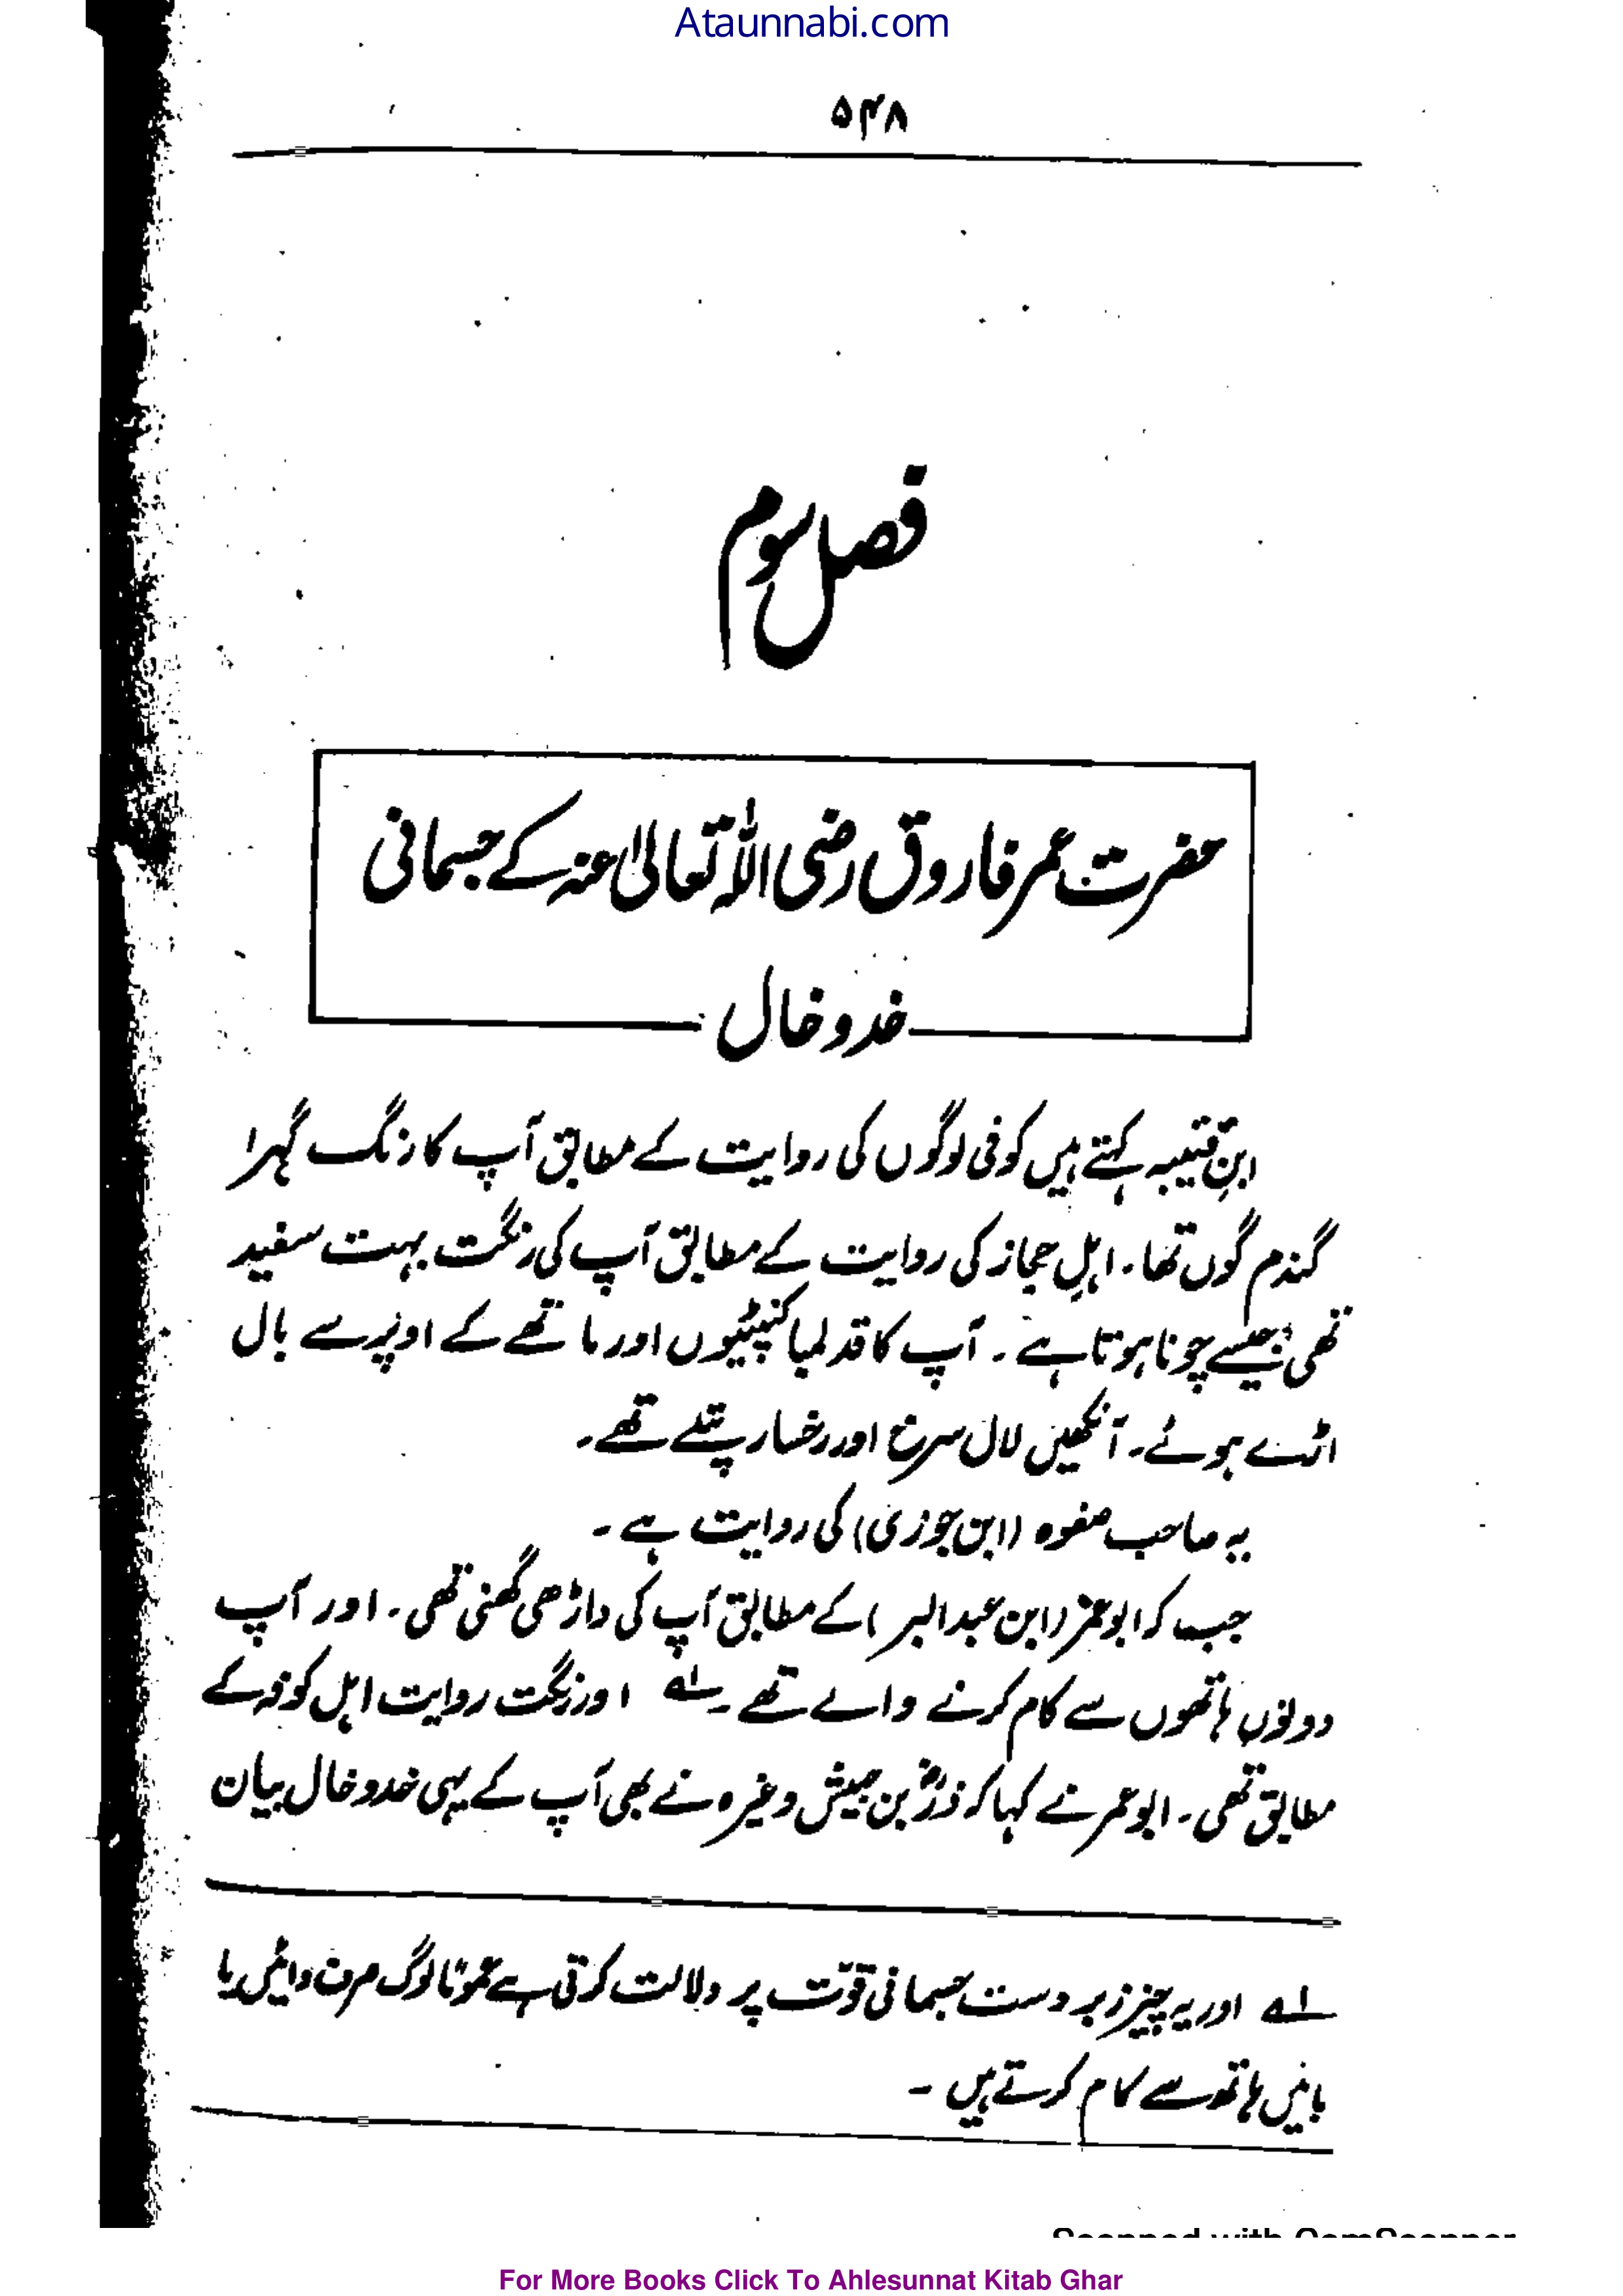 Ataunnabi.com
۵۴۸
فصل سوم
حضرت عمر فاروق رضی اللہ تعالیٰ عنہ کے جسمانی
خدوخال
ابن قتیبہ کہتے ہیں کوفی لوگوں کی روایت کے مطابق آپ کا رنگ گہرا
گندم گوں تھا۔ اہلِ حجاز کی روایت کے مطابق آپ کی رنگت بہت سفید
تھی جیسے چونا ہوتا ہے۔ آپ کا قد لمبا کنپٹیوں اور ماتھے کے اوپر سے بال
اڑے ہوئے۔ آنکھیں لال سرخ اور رخسار پتلے تھے۔
یہ صاحب صفوہ (ابن جوزی) کی روایت ہے۔
جب کہ ابو عمر (ابن عبدالبر) کے مطابق آپ کی داڑھی گھنی تھی۔ اور آپ
دونوں ہاتھوں سے کام کرنے والے تھے۔ لہ اور رنگت روایت اہل کوفہ کے
مطابق تھی۔ ابو عمر نے کہا کہ زرؓ بن حبیش وغیرہ نے بھی آپ کے یہی خدوخال بیان
لہ اور یہ چیز زبردست جسمانی قوّت پر دلالت کرتی ہے عموماً لوگ صرف دائیں یا
بائیں ہاتھ سے کام کرتے ہیں۔
Scanned with CamScanner
For More Books Click To Ahlesunnat Kitab Ghar